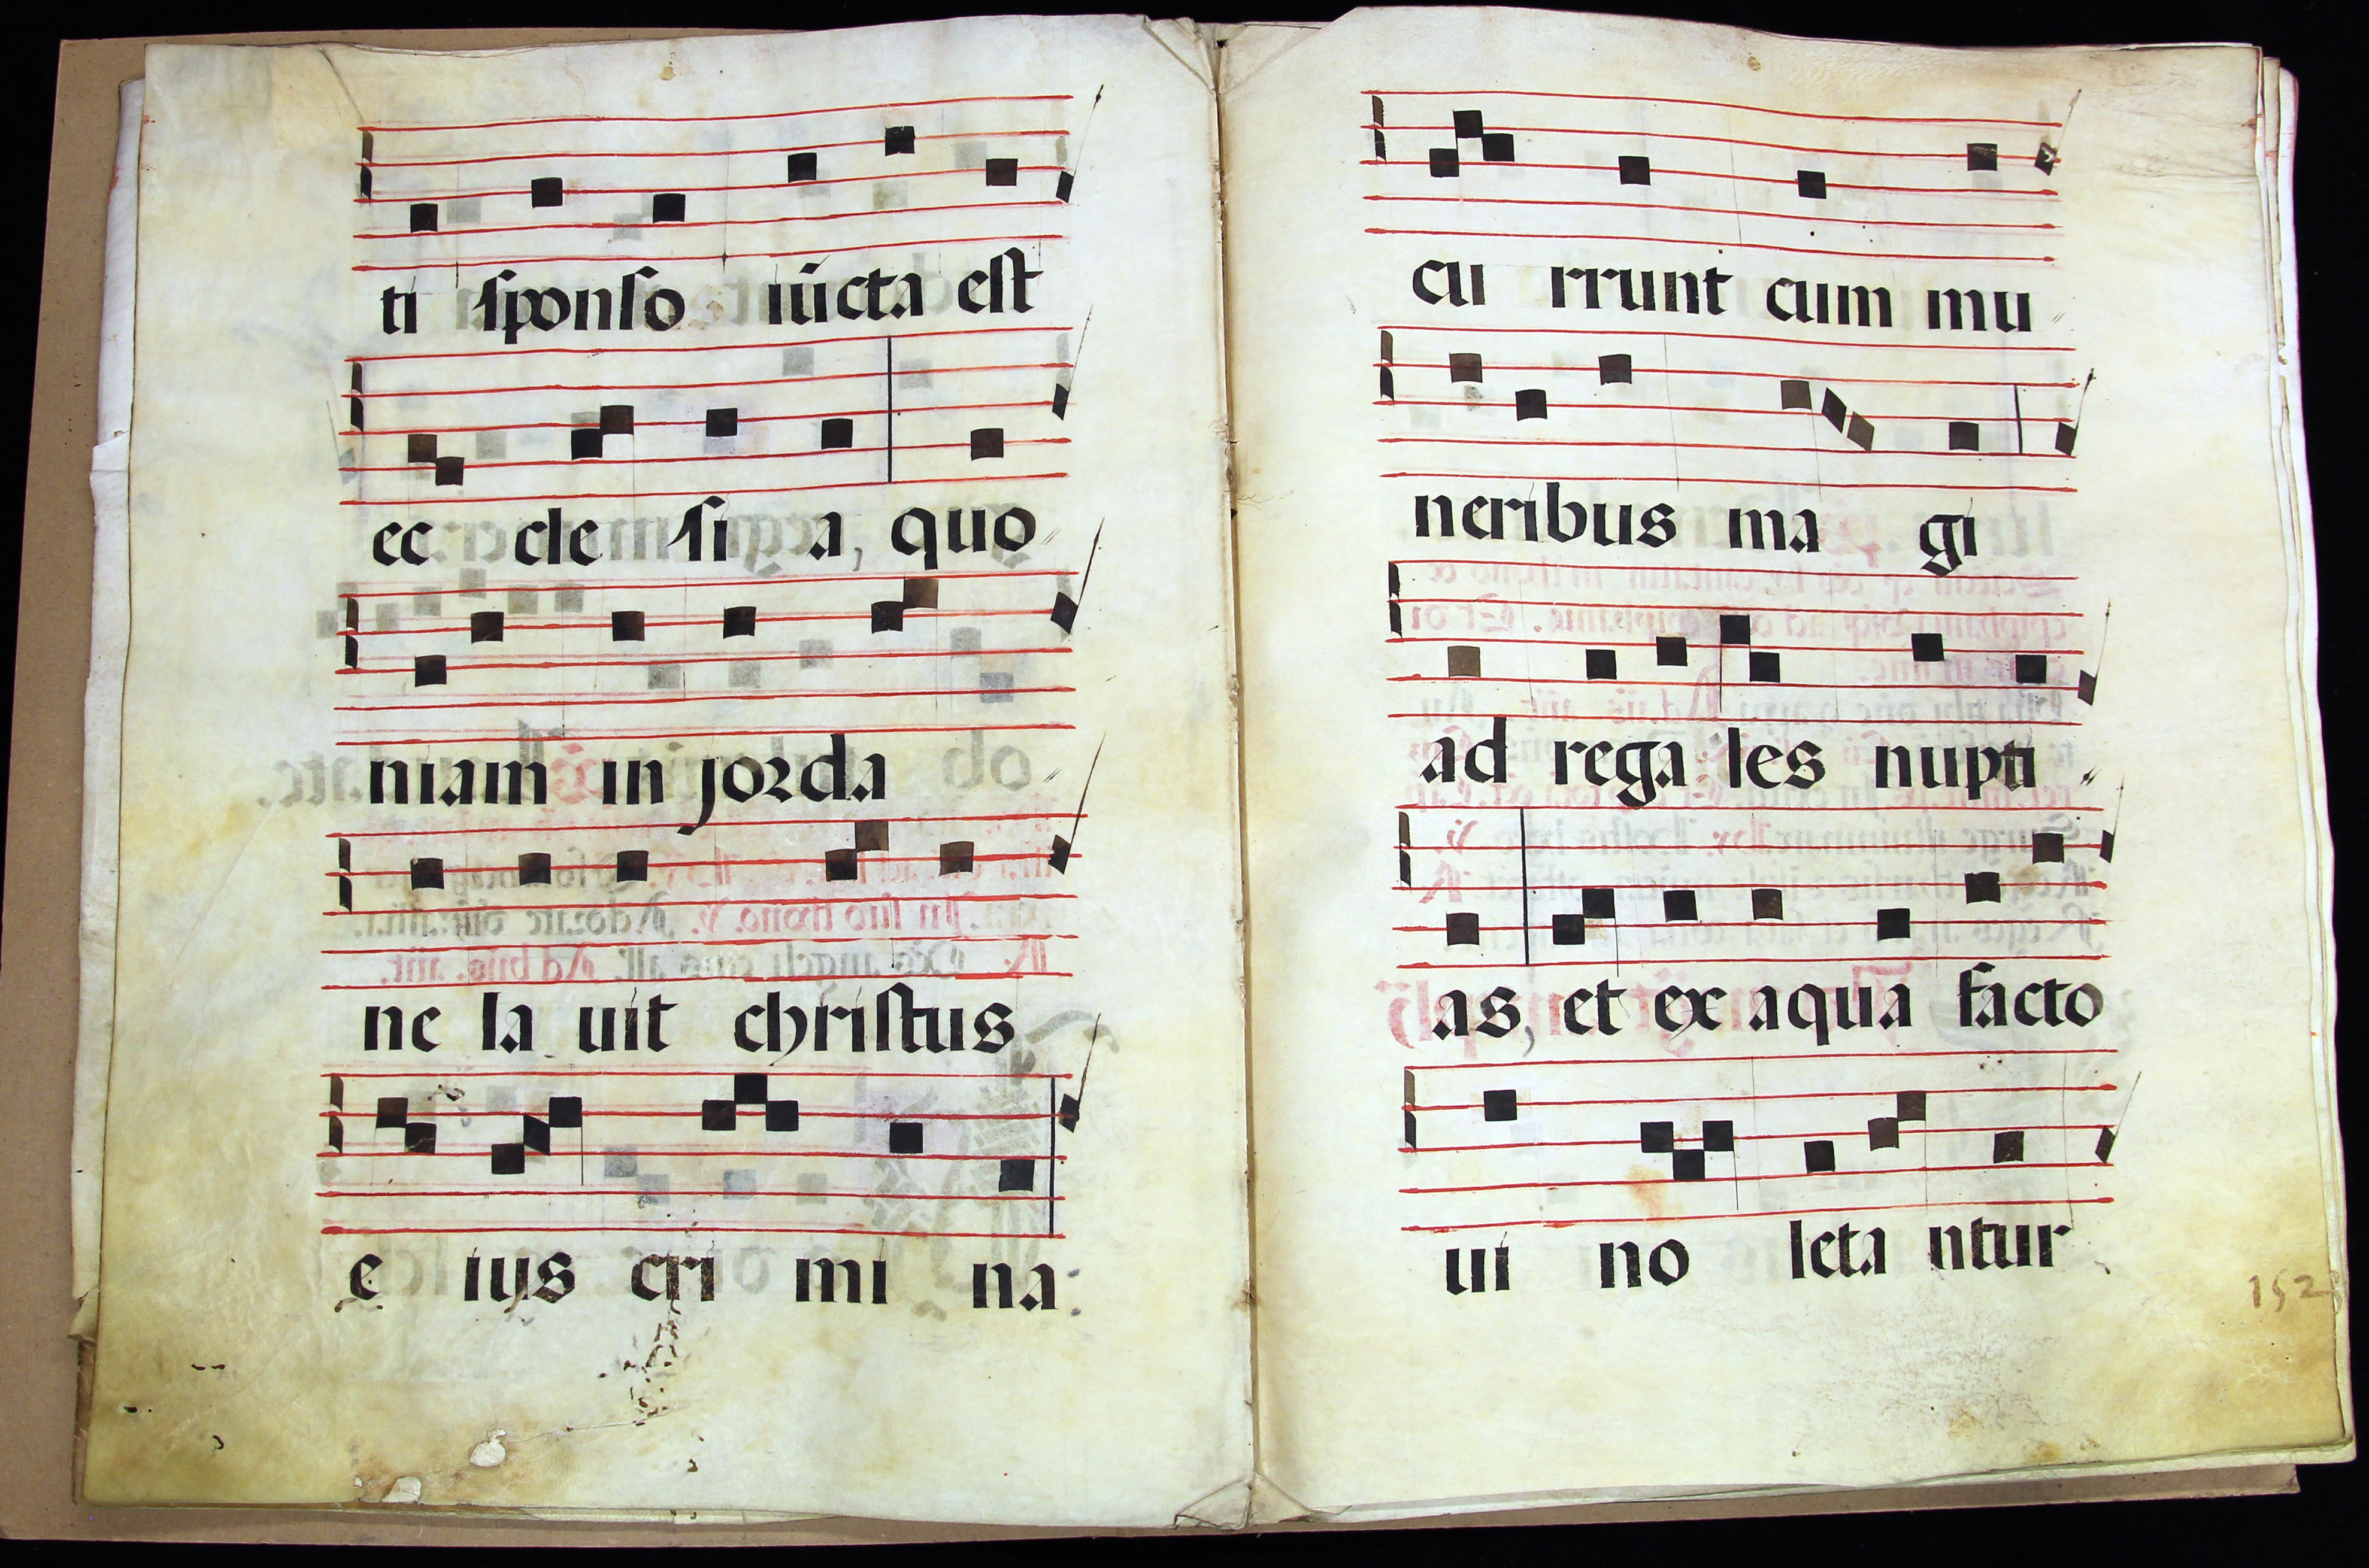 ti sponso iūcta est
ec cle si a, quo
niam in jorda
ne la uit christus
e ius cri mi na
cu rrunt cum mu
neribus ma gi
ad rega les nupti
as, et ex aqua facto
ui no leta ntur
152